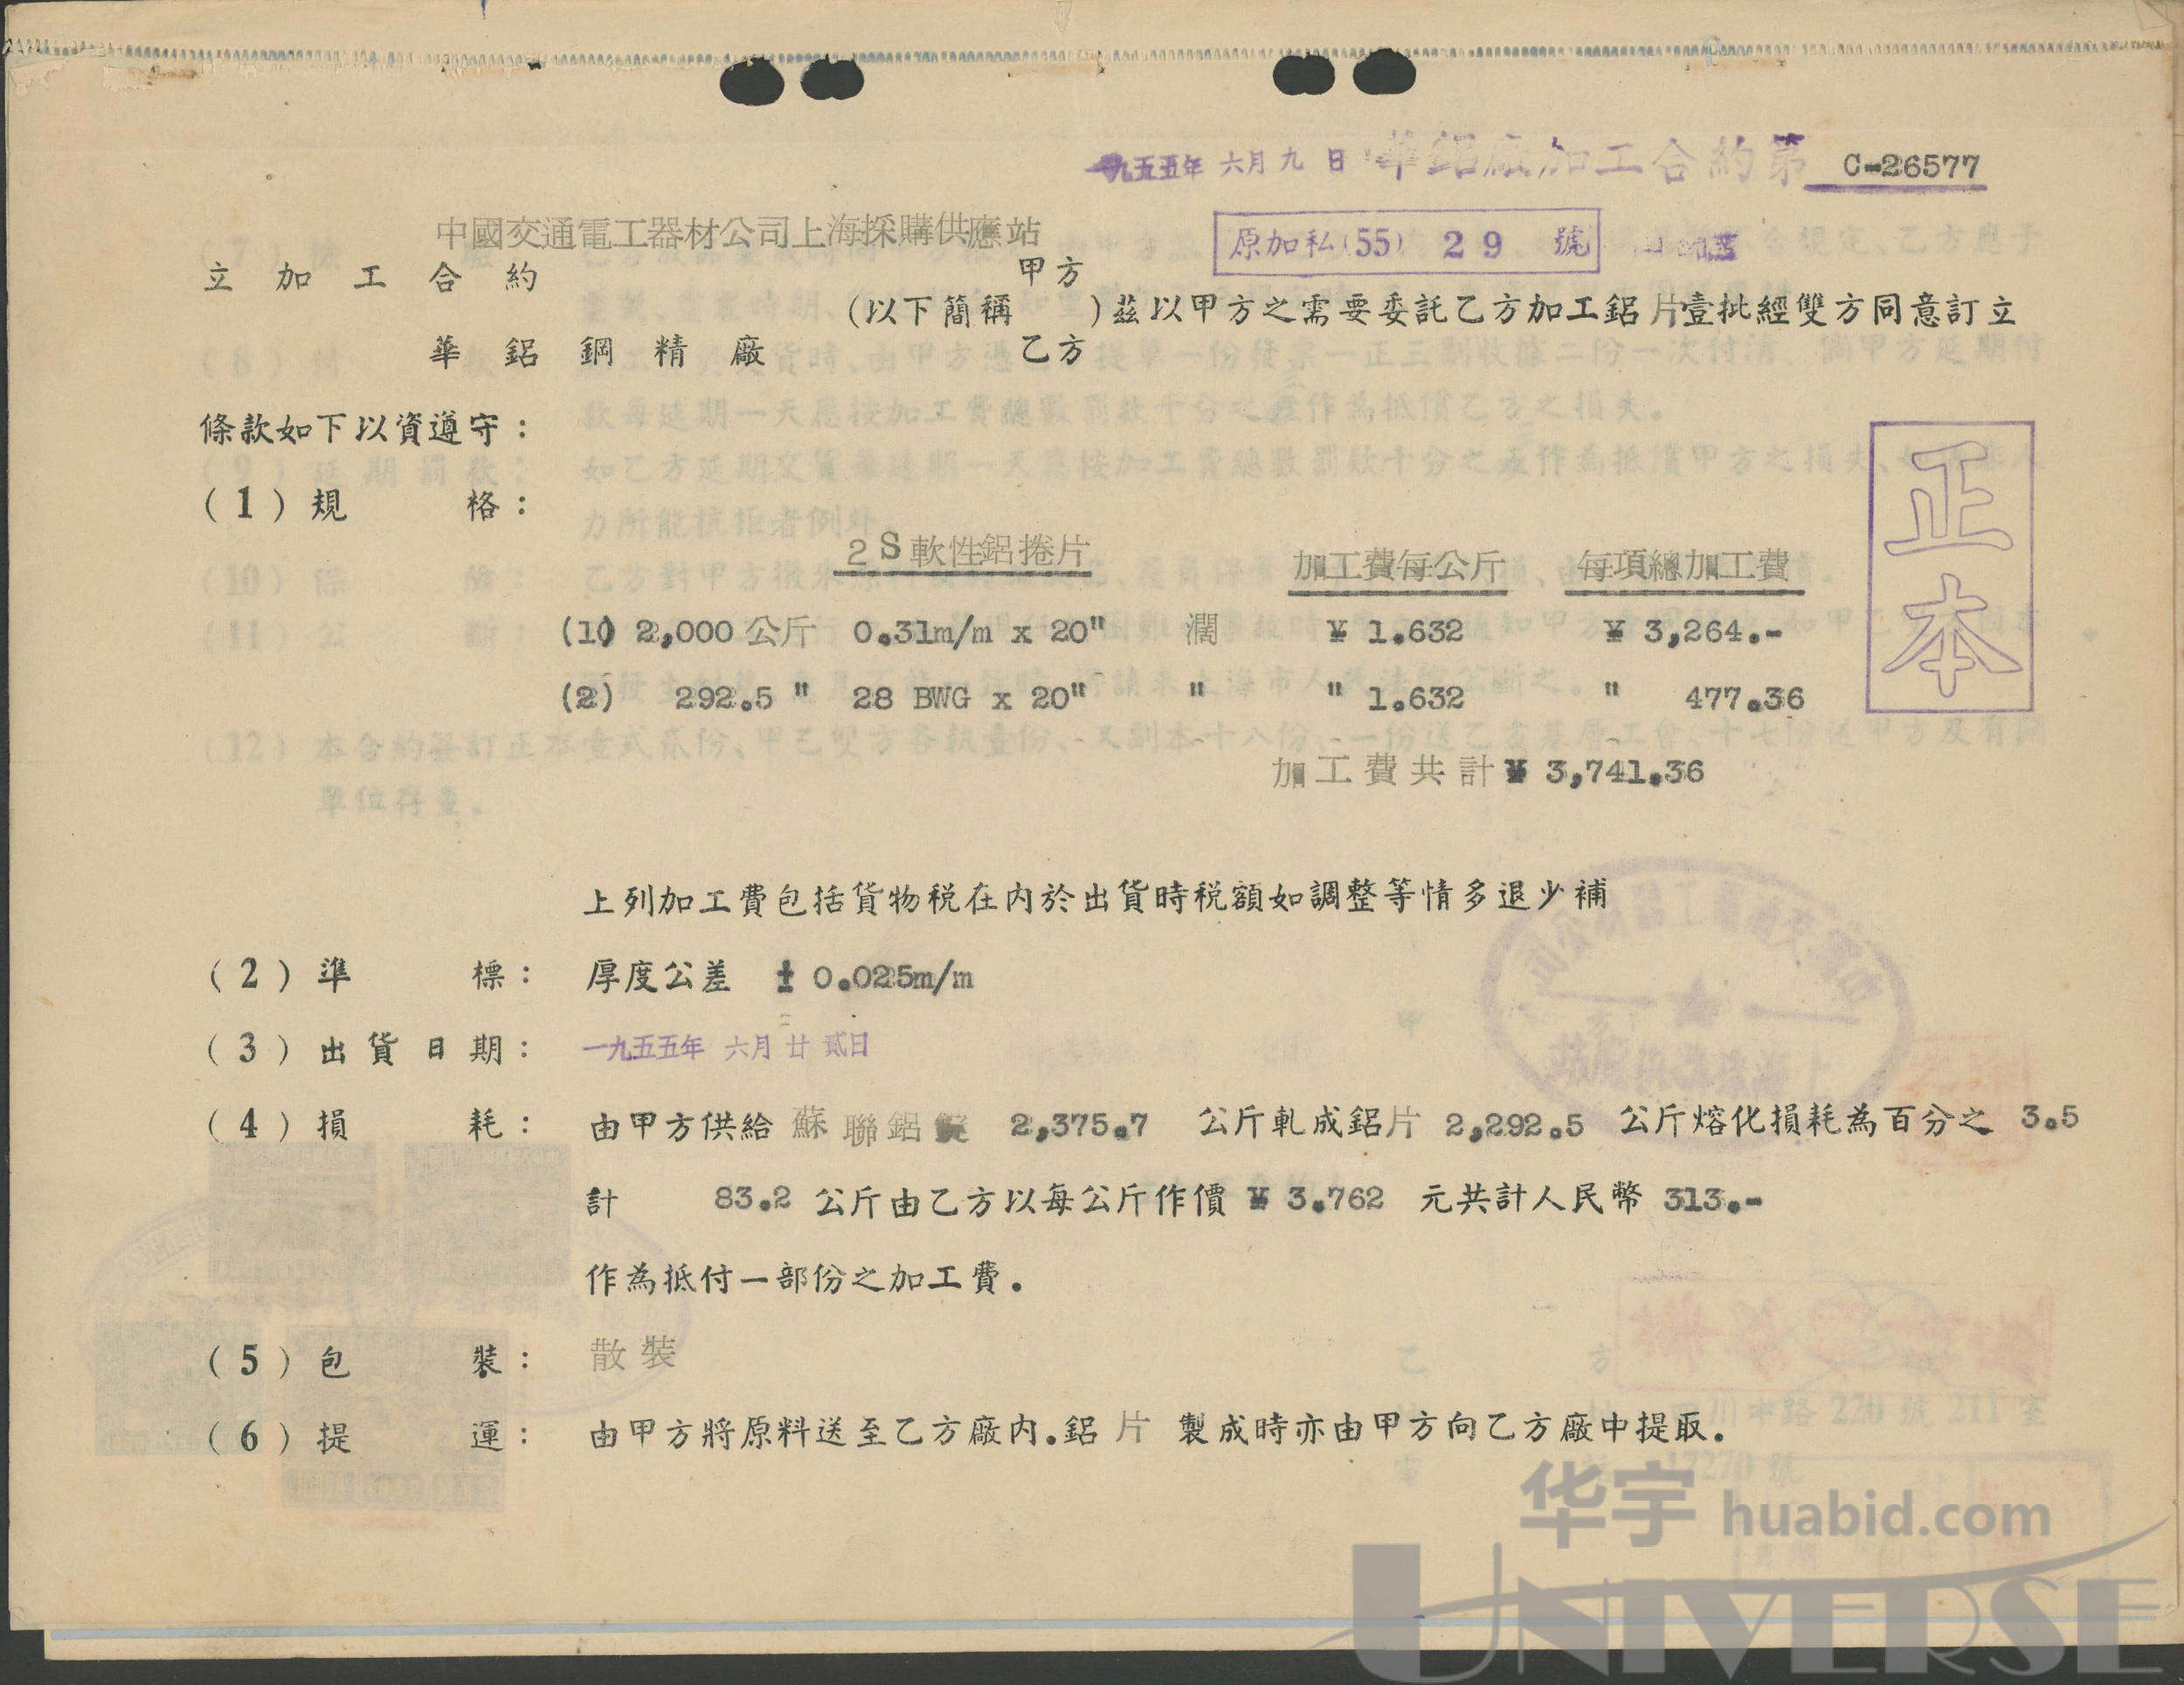 一九五五年 六月 九 日 華鋁廠加工合約第 C-26577
中國交通電工器材公司上海採購供應站
原加私(55) 29 號
立加工合約 甲方
(以下簡稱 )茲以甲方之需要委託乙方加工鋁片壹批經雙方同意訂立
華鋁鋼精廠 乙方
條款如下以資遵守：
正本
(1) 規格：
2S軟性鋁捲片 加工費每公斤 每項總加工費
(1) 2,000 公斤 0.31m/m x 20" 濶 ¥ 1.632 ¥ 3,264.-
(2) 292.5 " 28 BWG x 20" " " 1.632 " 477.36
加工費共計 ¥ 3,741.36
上列加工費包括貨物税在内於出貨時税額如調整等情多退少補
(2) 準標： 厚度公差 ± 0.025m/m
(3) 出貨日期： 一九五五年 六月 廿貳日
(4) 損耗： 由甲方供給 蘇聯鋁錠 2,375.7 公斤軋成鋁片 2,292.5 公斤熔化損耗為百分之 3.5
計 83.2 公斤由乙方以每公斤作價 ¥ 3.762 元共計人民幣 313.-
作為抵付一部份之加工費.
(5) 包裝： 散裝
(6) 提運： 由甲方將原料送至乙方廠内.鋁片 製成時亦由甲方向乙方廠中提取.
华宇 huabid.com
UNIVERSE